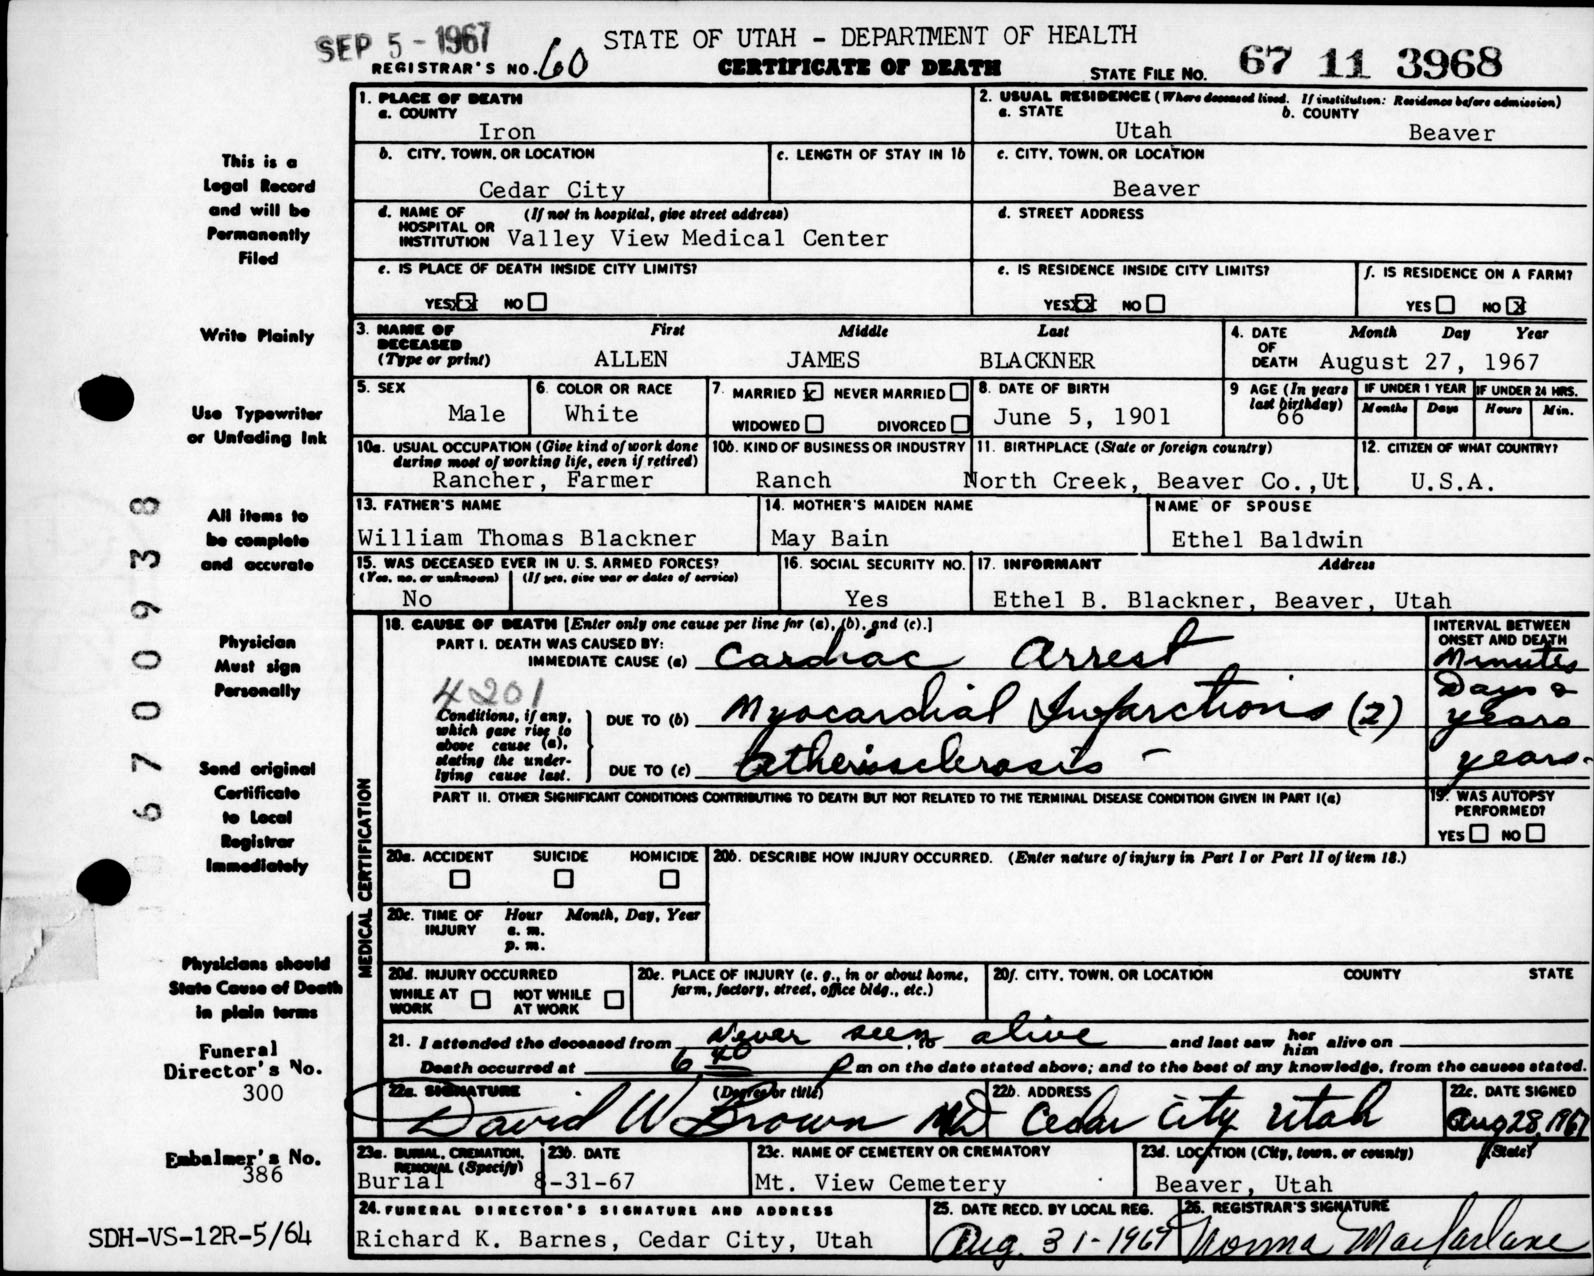 SEP 5 - 1967
STATE OF UTAH – DEPARTMENT OF HEALTH
REGISTRAR'S NO. 60
CERTIFICATE OF DEATH
STATE FILE NO. 67 11 3968
This is a
Legal Record
and will be
Permanently
Filed
Write Plainly
Use Typewriter
or Unfading Ink
All items to
be complete
and accurate
Physician
Must sign
Personally
Send original
Certificate
to Local
Registrar
Immediately
Physicians should
State Cause of Death
in plain terms
Funeral
Director's No.
300
Embalmer's No.
386
SDH-VS-12R-5/64
67 0 0 9 3 8
1. PLACE OF DEATH
a. COUNTY
Iron
2. USUAL RESIDENCE (Where deceased lived. If institution: Residence before admission)
a. STATE
Utah
b. COUNTY
Beaver
b. CITY, TOWN, OR LOCATION
Cedar City
c. LENGTH OF STAY IN 1b
c. CITY, TOWN, OR LOCATION
Beaver
d. NAME OF HOSPITAL OR INSTITUTION (If not in hospital, give street address)
Valley View Medical Center
d. STREET ADDRESS
e. IS PLACE OF DEATH INSIDE CITY LIMITS?
YES XX NO
e. IS RESIDENCE INSIDE CITY LIMITS?
YES XX NO
f. IS RESIDENCE ON A FARM?
YES NO X
3. NAME OF DECEASED (Type or print)
First Middle Last
ALLEN JAMES BLACKNER
4. DATE OF DEATH
Month Day Year
August 27, 1967
5. SEX
Male
6. COLOR OR RACE
White
7. MARRIED X NEVER MARRIED
WIDOWED DIVORCED
8. DATE OF BIRTH
June 5, 1901
9 AGE (In years last birthday)
66
IF UNDER 1 YEAR
Months Days
IF UNDER 24 HRS.
Hours Min.
10a. USUAL OCCUPATION (Give kind of work done
during most of working life, even if retired)
Rancher, Farmer
10b. KIND OF BUSINESS OR INDUSTRY
Ranch
11. BIRTHPLACE (State or foreign country)
North Creek, Beaver Co., Ut
12. CITIZEN OF WHAT COUNTRY?
U.S.A.
13. FATHER'S NAME
William Thomas Blackner
14. MOTHER'S MAIDEN NAME
May Bain
NAME OF SPOUSE
Ethel Baldwin
15. WAS DECEASED EVER IN U. S. ARMED FORCES?
(Yes, no, or unknown) (If yes, give war or dates of service)
No
16. SOCIAL SECURITY NO.
Yes
17. INFORMANT Address
Ethel B. Blackner, Beaver, Utah
MEDICAL CERTIFICATION
18. CAUSE OF DEATH [Enter only one cause per line for (a), (b), and (c).]
PART I. DEATH WAS CAUSED BY:
IMMEDIATE CAUSE (a) Cardiac Arrest
INTERVAL BETWEEN
ONSET AND DEATH
Minutes
4201
Conditions, if any,
which gave rise to
above cause (a),
stating the under-
lying cause last.
DUE TO (b) Myocardial Infarctions (2)
Days &
years
DUE TO (c) Atheriosclerosis –
years.
PART II. OTHER SIGNIFICANT CONDITIONS CONTRIBUTING TO DEATH BUT NOT RELATED TO THE TERMINAL DISEASE CONDITION GIVEN IN PART I(a)
19. WAS AUTOPSY
PERFORMED?
YES NO
20a. ACCIDENT SUICIDE HOMICIDE
20b. DESCRIBE HOW INJURY OCCURRED. (Enter nature of injury in Part I or Part II of item 18.)
20c. TIME OF INJURY
Hour Month, Day, Year
a. m.
p. m.
20d. INJURY OCCURRED
WHILE AT WORK NOT WHILE AT WORK
20e. PLACE OF INJURY (e. g., in or about home,
farm, factory, street, office bldg., etc.)
20f. CITY, TOWN, OR LOCATION COUNTY STATE
21. I attended the deceased from Never seen, to alive and last saw her him alive on
Death occurred at 6 40 P m on the date stated above; and to the best of my knowledge, from the causes stated.
22a. SIGNATURE (Degree or title)
David W. Brown MD
22b. ADDRESS
Cedar City Utah
22c. DATE SIGNED
Aug 28, 1967
23a. BURIAL, CREMATION,
REMOVAL (Specify)
Burial
23b. DATE
8-31-67
23c. NAME OF CEMETERY OR CREMATORY
Mt. View Cemetery
23d. LOCATION (City, town, or county) (State)
Beaver, Utah
24. FUNERAL DIRECTOR'S SIGNATURE AND ADDRESS
Richard K. Barnes, Cedar City, Utah
25. DATE RECD. BY LOCAL REG.
Aug. 31-1967
26. REGISTRAR'S SIGNATURE
Norma Macfarlane